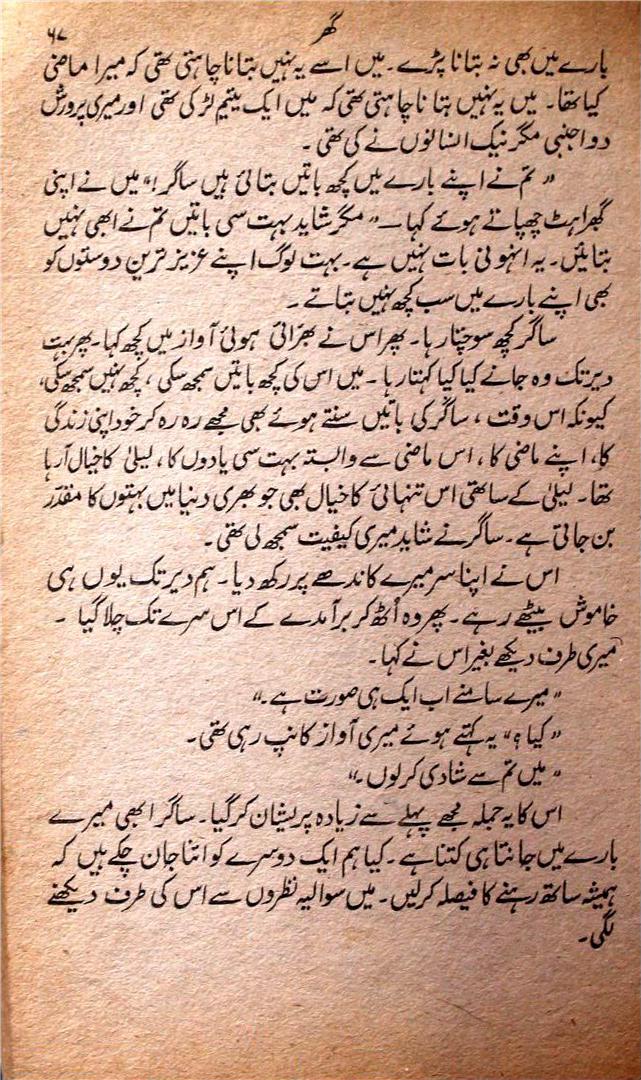 گھر
۶۷
بارے میں بھی نہ بتانا پڑے۔ میں اسے یہ نہیں بتانا چاہتی تھی کہ میرا ماضی
کیا تھا۔ میں یہ نہیں بتانا چاہتی تھی کہ میں ایک یتیم لڑکی تھی اور میری پرورش
دو اجنبی مگر نیک انسانوں نے کی تھی۔
”تم نے اپنے بارے میں کچھ باتیں بتائی ہیں ساگر!“ میں نے اپنی
گھبراہٹ چھپاتے ہوئے کہا — ”مگر شاید بہت سی باتیں تم نے ابھی نہیں
بتائیں۔ یہ انہونی بات نہیں ہے۔ بہت لوگ اپنے عزیز ترین دوستوں کو
بھی اپنے بارے میں سب کچھ نہیں بتاتے۔
ساگر کچھ سوچتا رہا۔ پھر اس نے بھرّائی ہوئی آواز میں کچھ کہا۔ پھر بہت
دیر تک وہ جانے کیا کیا کہتا رہا۔ میں اس کی کچھ باتیں سمجھ سکی، کچھ نہیں سمجھ سکی،
کیونکہ اس وقت، ساگر کی باتیں سنتے ہوئے بھی مجھے رہ رہ کر خود اپنی زندگی
کا، اپنے ماضی کا، اس ماضی سے وابستہ بہت سی یادوں کا، لیلیٰ کا خیال آ رہا
تھا۔ لیلیٰ کے ساتھ ہی اس تنہائی کا خیال بھی جو بھری دنیا میں بہتوں کا مقدّر
بن جاتی ہے۔ ساگر نے شاید میری کیفیت سمجھ لی تھی۔
اس نے اپنا سر میرے کاندھے پر رکھ دیا۔ ہم دیر تک یوں ہی
خاموش بیٹھے رہے۔ پھر وہ اُٹھ کر برآمدے کے اس سرے تک چلا گیا۔
میری طرف دیکھے بغیر اس نے کہا۔
”میرے سامنے اب ایک ہی صورت ہے۔“
”کیا؟“ یہ کہتے ہوئے میری آواز کانپ رہی تھی۔
”میں تم سے شادی کر لوں۔“
اس کا یہ جملہ مجھے پہلے سے زیادہ پریشان کر گیا۔ ساگر ابھی میرے
بارے میں جانتا ہی کتنا ہے۔ کیا ہم ایک دوسرے کو اتنا جان چکے ہیں کہ
ہمیشہ ساتھ رہنے کا فیصلہ کر لیں۔ میں سوالیہ نظروں سے اس کی طرف دیکھنے
لگی۔